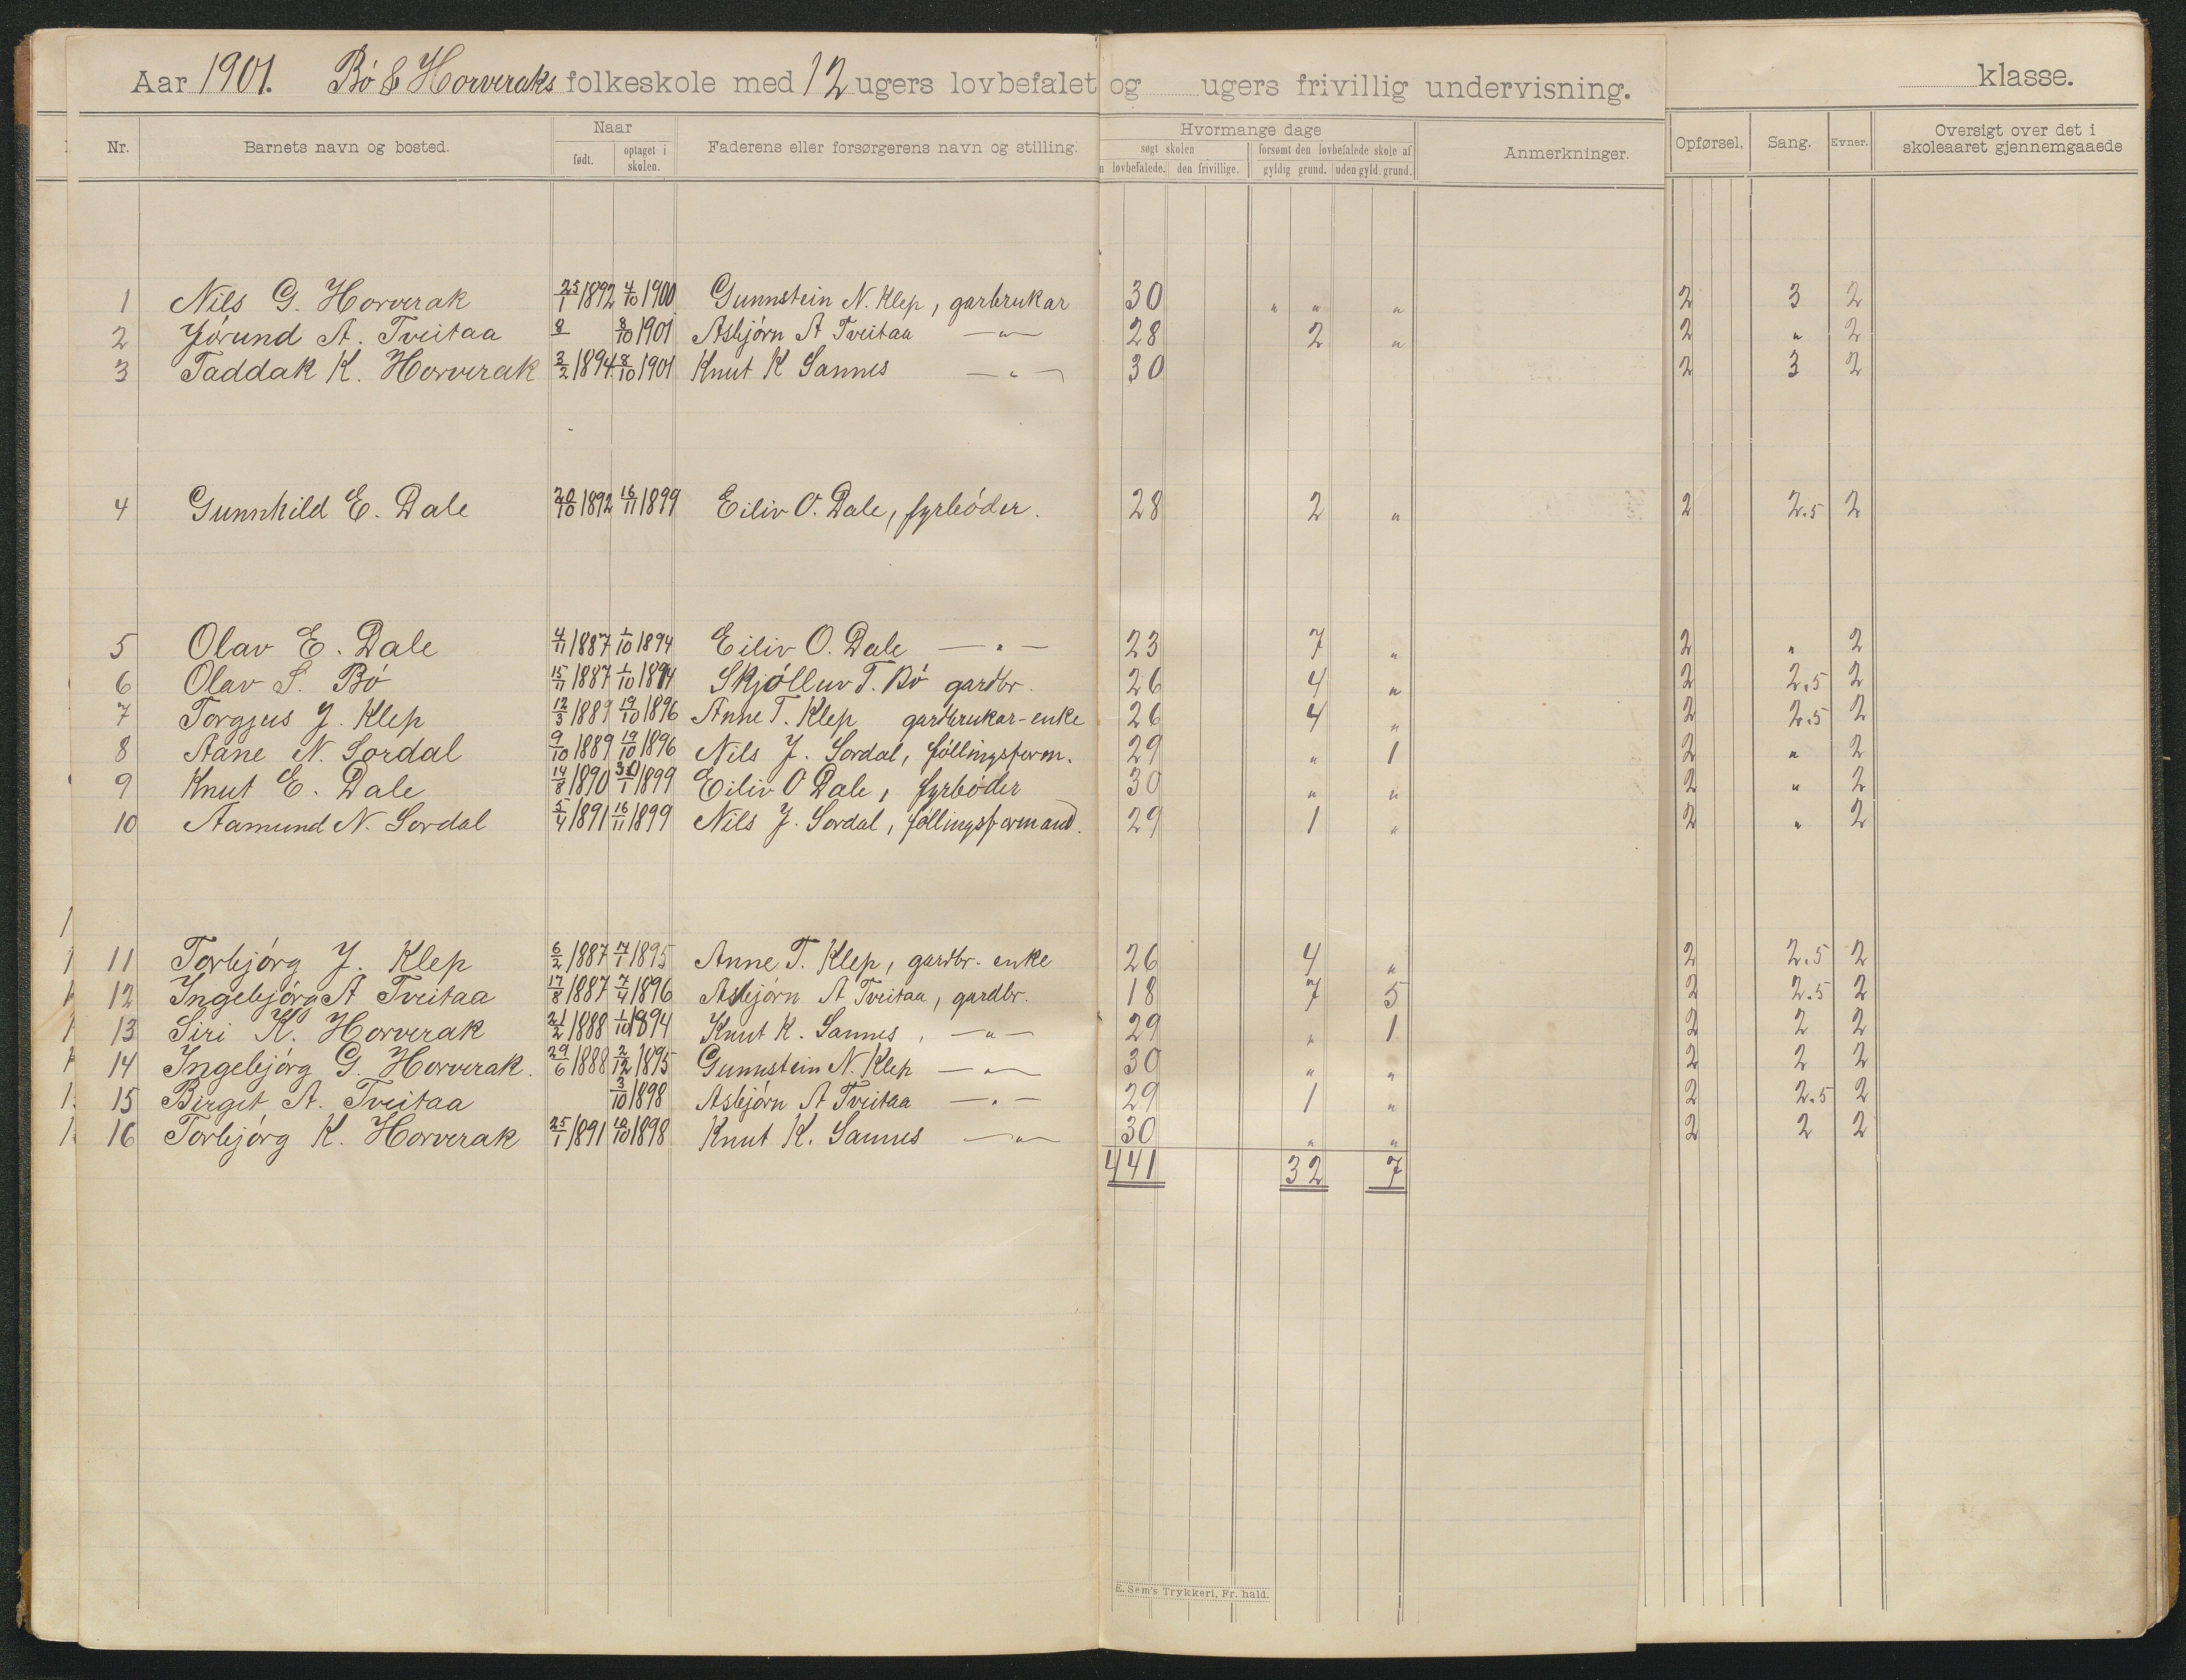 Aar 1901. Bó & Horveraks folkeskole med 12 ugers lovbefalet og ugers frivillig undervisning. klasse.
Nr. Barnets navn og bosted. Naar født. optaget i skolen. Faderens eller forsørgerens navn og stilling. Hvormange dage søgt skolen n lovbefalede. den frivillige. forsømt den lovbefalede skole af gyldig grund. uden gyld. grund. Anmerkninger. Opførsel. Sang. Evner. Oversigt over det i skoleaaret gjennemgaaede
1 Nils G. Horverak 25/1 1892 4/10 1900 Gunnstein N. Klep, garbrukar 30 " " " 2 3 2
2 Jórund A. Tveitaa 8/ 8/10 1901 Asbjórn A Tveitaa —"— 28 2 " 2 " 2
3 Taddak K. Horverak 3/2 1894 8/10 1901 Knut K Sannes —"— 30 2 3 2
4 Gunnhild E. Dale 20/10 1892 16/11 1899 Eiliv O. Dale, fyrbóder. 28 2 " 2 2.5 2
5 Olav E. Dale 4/11 1887 1/10 1894 Eiliv O. Dale —"— 23 7 " 2 " 2
6 Olav S. Bó 15/11 1887 1/10 1894 Skjólluv T. Bó gardbr. 26 4 " 2 2.5 2
7 Torgjus J. Klep 12/3 1889 19/10 1896 Anne T. Klep gardbrukar-enke 26 4 " 2 2.5 2
8 Aane N. Sordal 9/10 1889 19/10 1896 Nils J. Sordal, fóllingsform. 29 " 1 2 " 2
9 Knut E. Dale 14/8 1890 1899 Eiliv O Dale, fyrbóder 30 " " 2 " 2
10 Aamund N. Sordal 5/4 1891 16/11 1899 Nils J. Sordal, fóllingsformand. 29 1 " 2 " 2
11 Torbjórg J. Klep 6/2 1887 7/1 1895 Anne T. Klep, gardbr. enke 26 4 " 2 2.5 2
12 Ingebjórg A Tveitaa 17/8 1887 7/4 1896 Asbjórn A Tveitaa, gardbr. 18 7 5 2 2.5 2
13 Siri K. Horverak 21/2 1888 1/10 1894 Knut K. Sannes, —"— 29 " 1 2 2 2
14 Ingebjórg G. Horverak. 29/6 1888 2/12 1895 Gunnstein N. Klep —"— 30 " " 2 2 2
15 Birgit A. Tveitaa 3/10 1898 Asbjórn A Tveitaa —"— 29 1 " 2 2.5 2
16 Torbjórg K. Horverak 25/1 1891 10/10 1898 Knut K. Sannes —"— 30 " " 2 2 2
441 32 7
E. Sem's Trykkeri, Fr. hald.